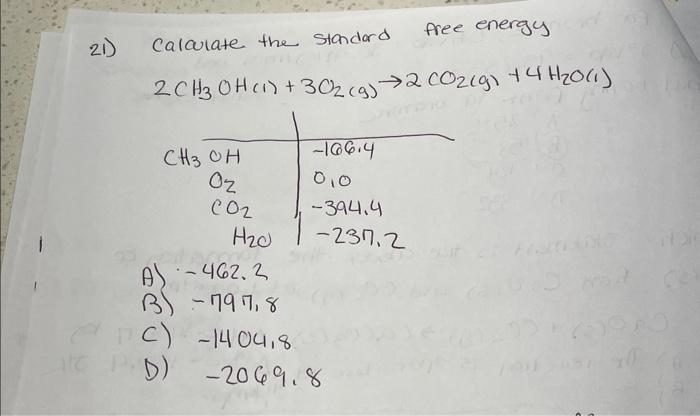 21) Calculate the standard free energy
2CH3OH(l) + 3O2(g) → 2CO2(g) + 4H2O(l)
CH3OH -166.4
O2 0.0
CO2 -394.4
H2O -237.2
A) -462.2
B) -797.8
C) -1404.8
D) -2069.8